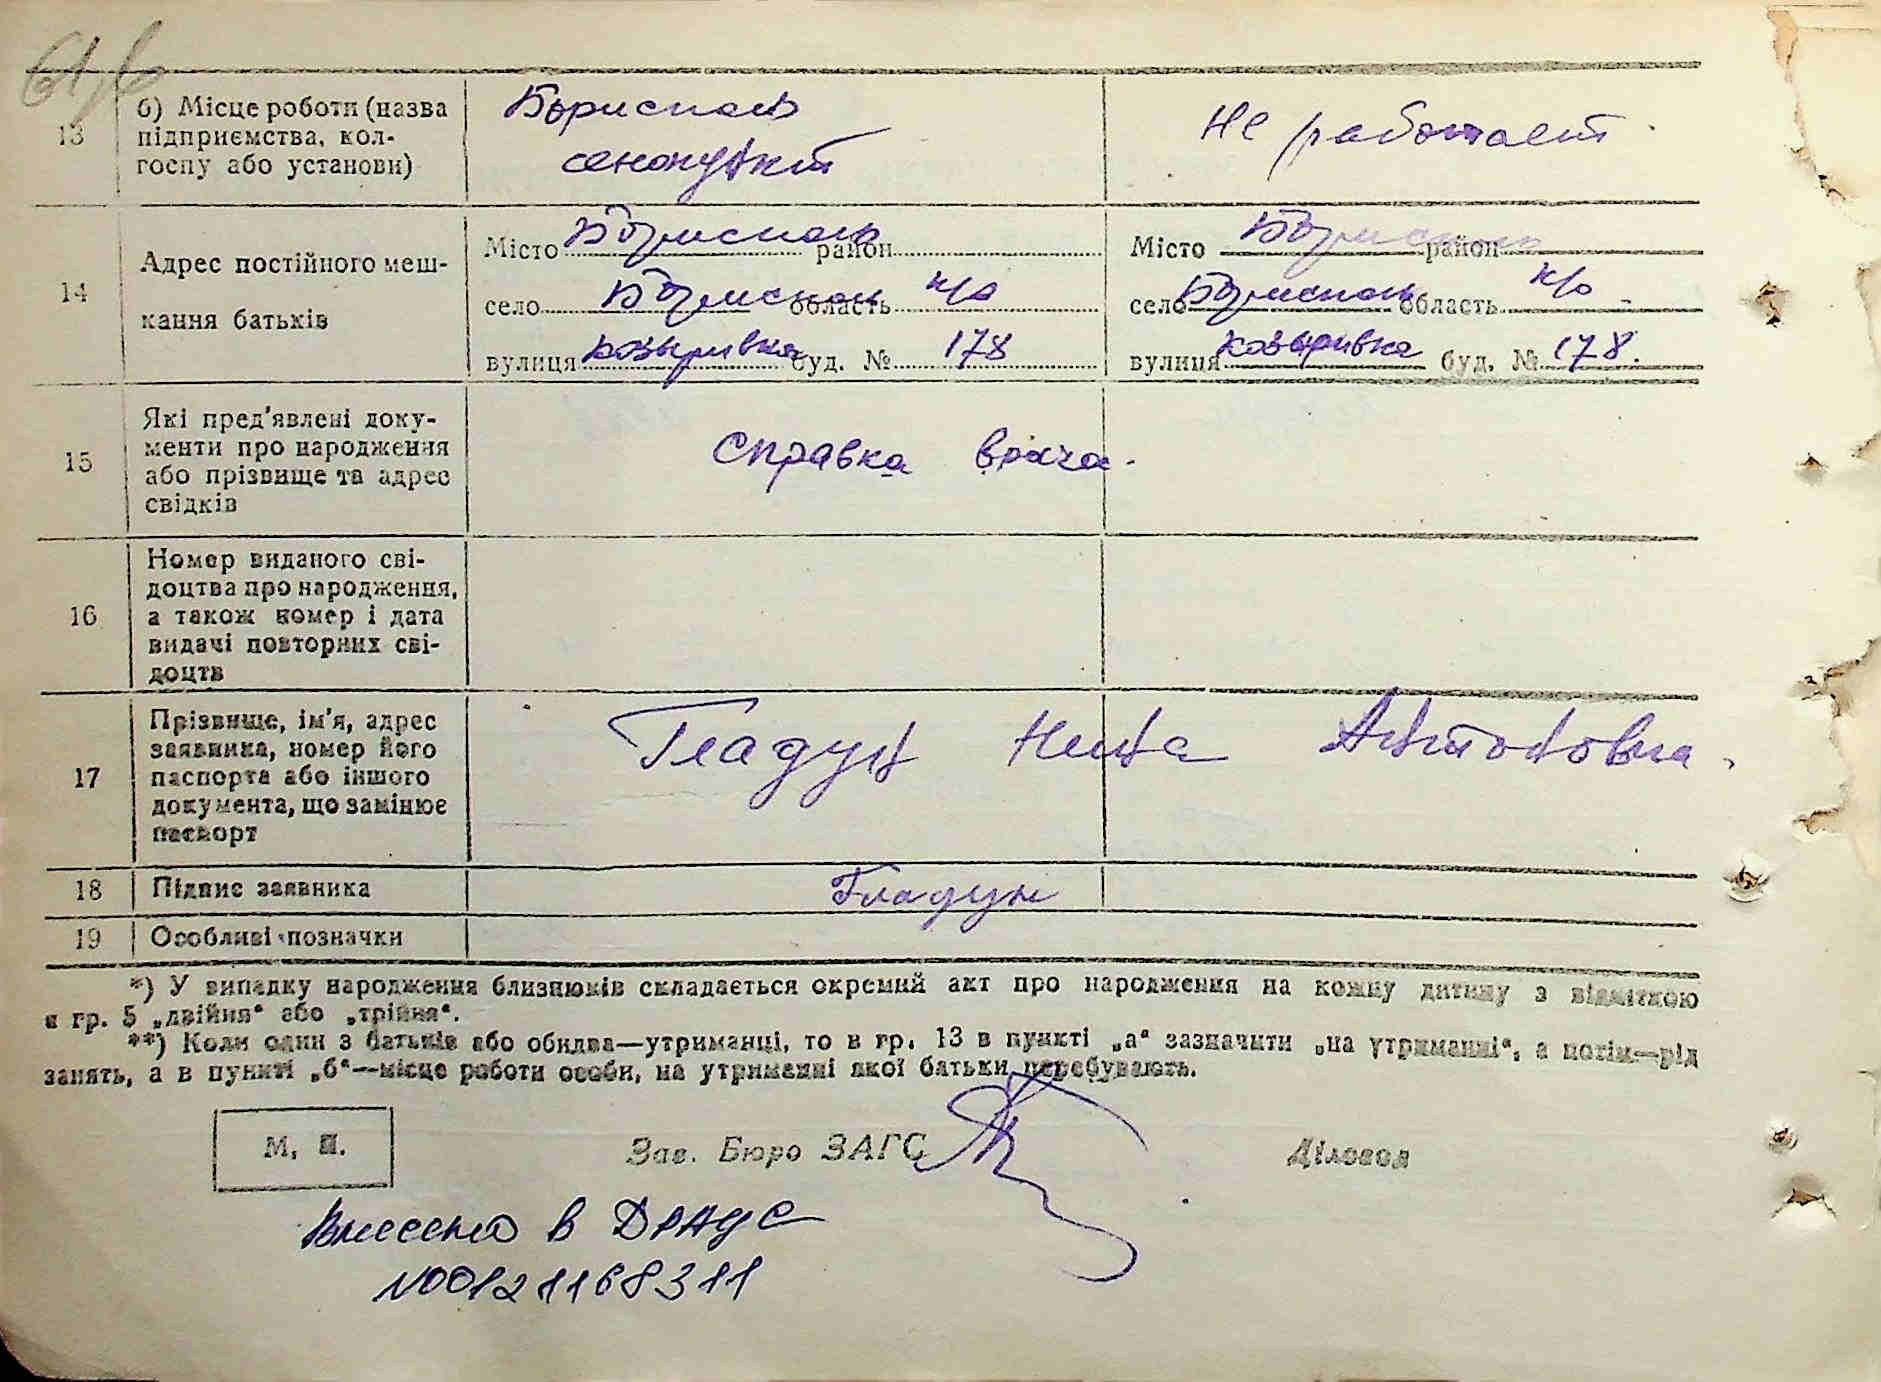 61/6
13 б) Місце роботи (назва підприємства, кол-
госпу або установи) Бориспол Не работает
сенопункт
14 Адрес постійного меш-
кання батьків
Місто Борисполь район Місто Борисполь район
село Борисполь область к/о село Борисполь область к/о
вулиця козыривка буд. № 178 вулиця козыривка буд. № 178.
15 Які пред'явлені доку-
менти про народження
або прізвище та адрес
свідків
Справка врача.
16 Номер виданого сві-
доцтва про народження,
а також номер і дата
видачі повторних сві-
доцтв
17 Прізвище, ім'я, адрес
заявника, номер його
паспорта або іншого
документа, що замінює
паспорт
Гладун Нина Антоновна.
18 Підпис заявника Гладун
19 Особливі позначки
*) У випадку народження близнюків складається окремий акт про народження на кожну дитину з відміткою
в гр. 5 „двійня“ або „трійня“.
**) Коли один з батьків або обидва—утриманці, то в гр. 13 в пункті „а“ зазначити „на утриманні“, а потім—рід
занять, а в пункті „б“—місце роботи особи, на утриманні якої батьки перебувають.
М. П. Зав. Бюро ЗАГС Діловод
Внесено в ДРАЦС
N00121168311